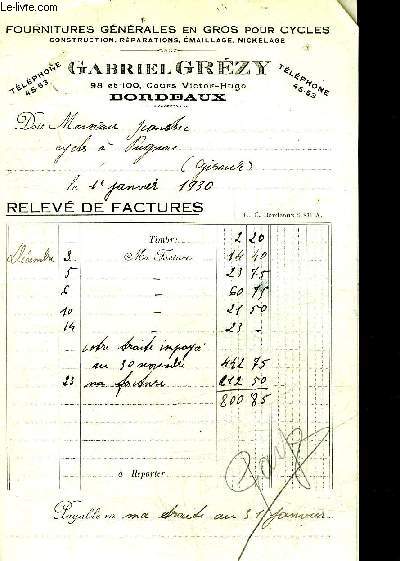 FOURNITURES GÉNÉRALES EN GROS POUR CYCLES
CONSTRUCTION, RÉPARATIONS, ÉMAILLAGE, NICKELAGE
TÉLÉPHONE 46-63
GABRIEL GRÉZY
TÉLÉPHONE 46-63
98 et 100, Cours Victor-Hugo
BORDEAUX
Doit Monsieur
cycles à Pugnac
(Gironde)
le 1r janvier 1930
RELEVÉ DE FACTURES
R. C. Bordeaux A.
Timbre 2 20
Décembre 2 Ma Facture 14 40
5 " 23 75
6 " 60 75
10 " 21 50
14 " 23 -
votre traite impayé
au 30 novembre 442 75
23 ma facture 212 50
800 85
à Reporter
Payé
Payable en ma traite au 31 janvier